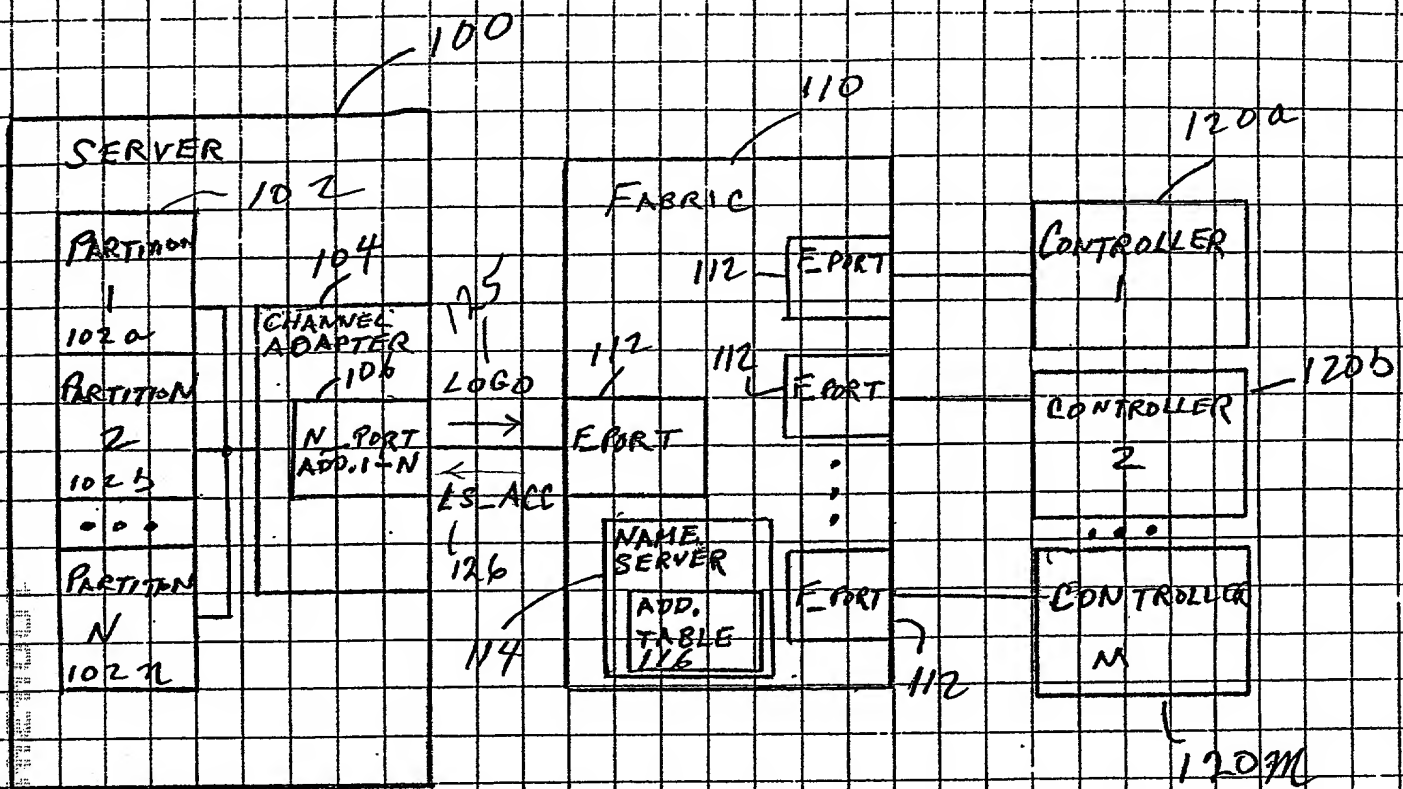 100
SERVER
102
PARTITION
1
102a
PARTITION
2
102b
• • •
PARTITION
N
102n
104
CHANNEL
ADAPTER
106
N_PORT
ADD. 1-N
125
LOGO
LS_ACC
126
110
FABRIC
112
F_PORT
112
F_PORT
112
F_PORT
F_PORT
112
NAME
SERVER
ADD.
TABLE
116
114
120a
CONTROLLER
1
120b
CONTROLLER
2
• • •
CONTROLLER
M
120m